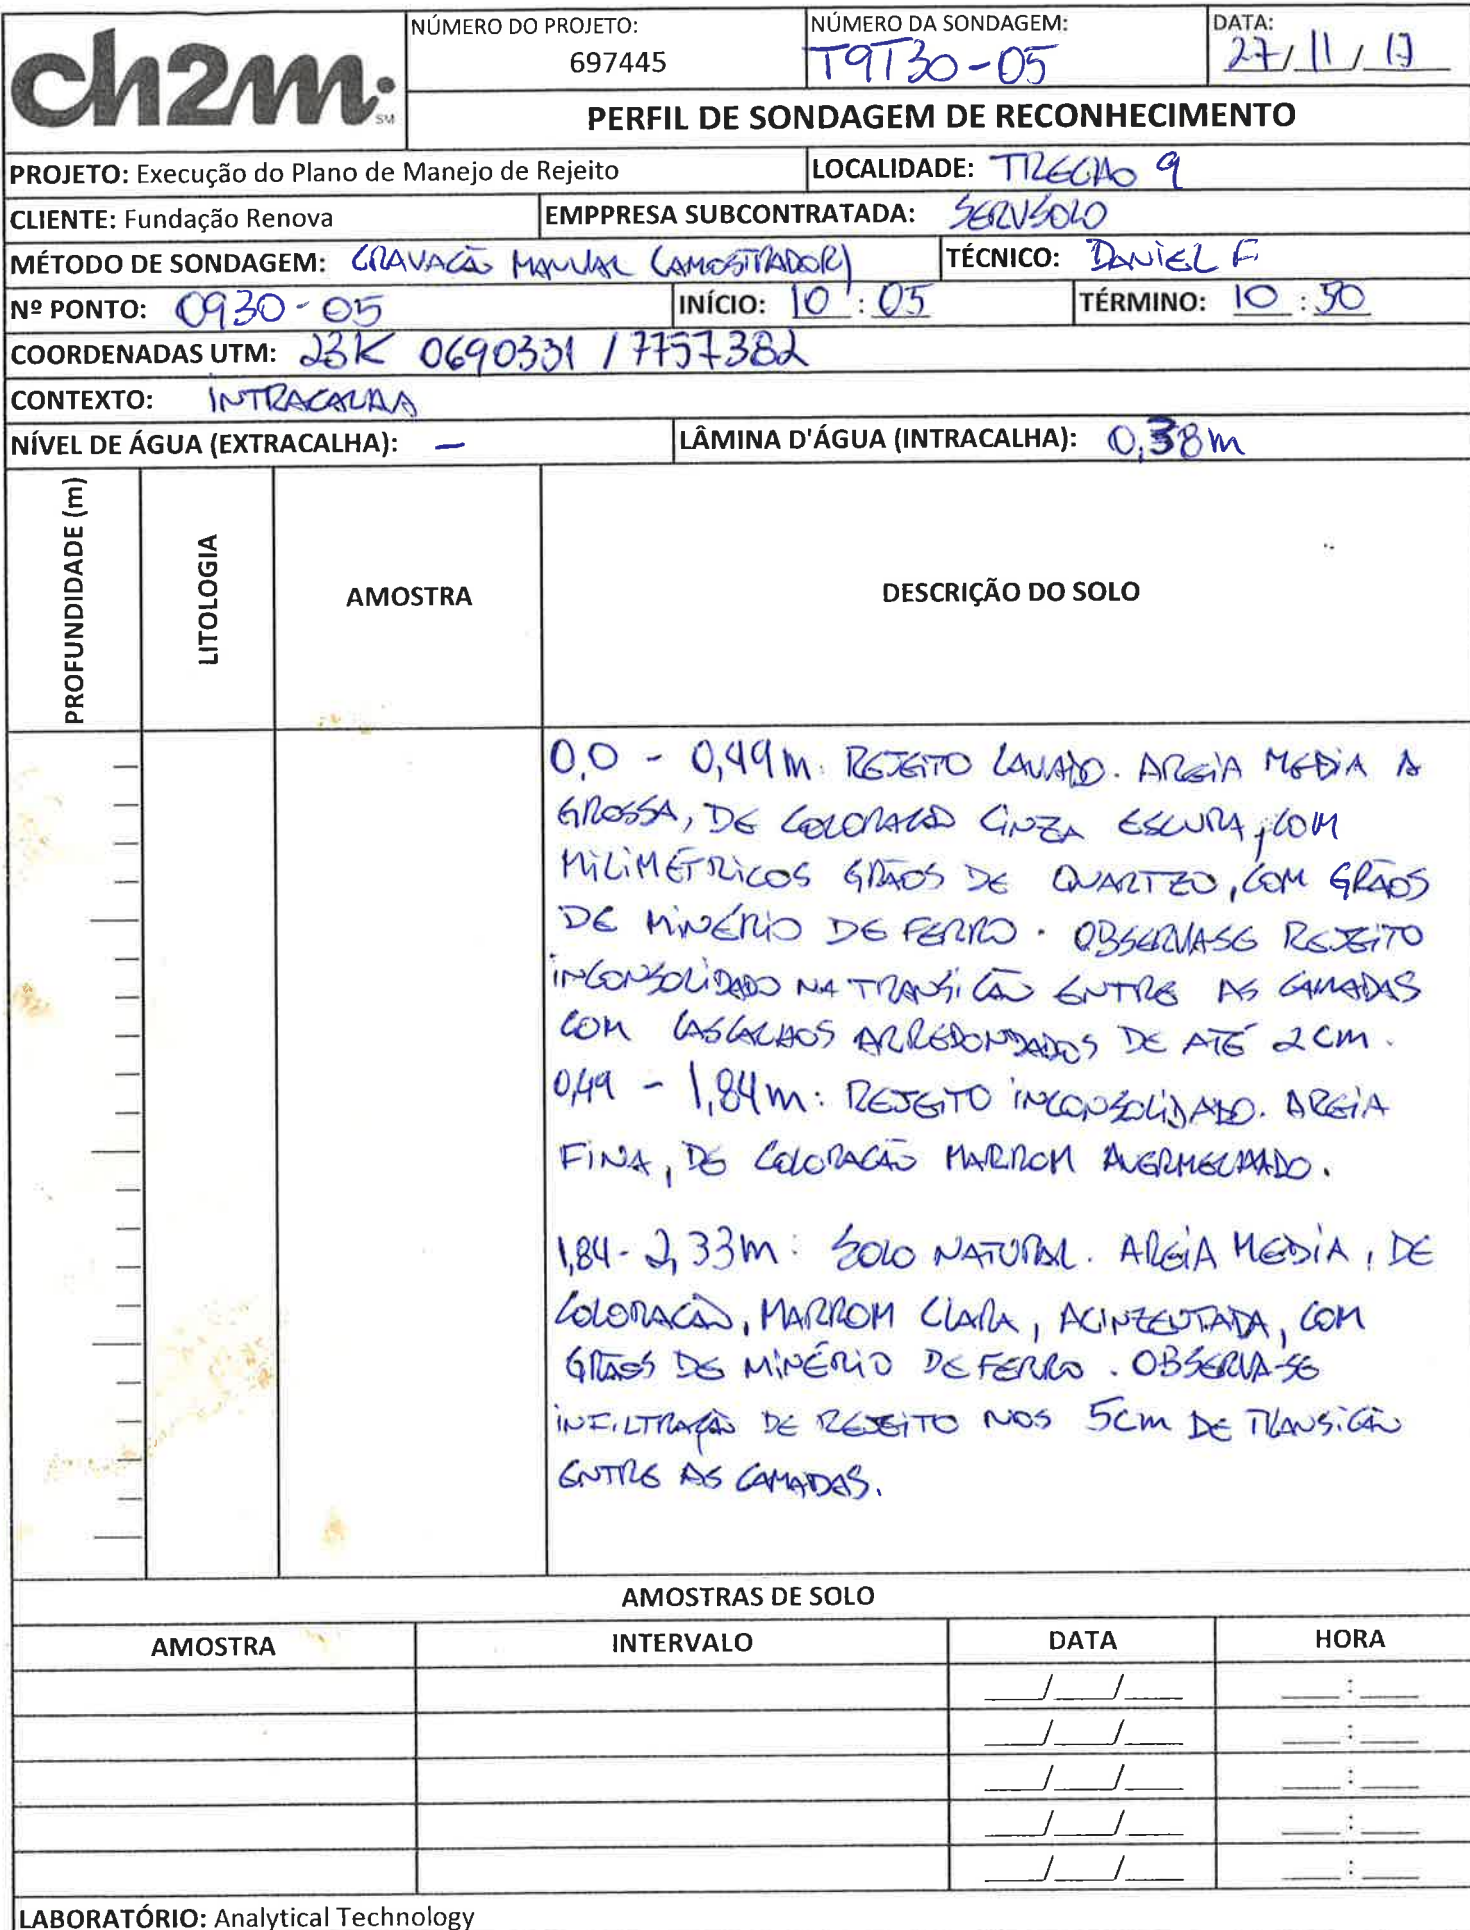 ch2m: SM
NÚMERO DO PROJETO:
697445
NÚMERO DA SONDAGEM:
T9T30-05
DATA:
27/11/17
PERFIL DE SONDAGEM DE RECONHECIMENTO
PROJETO: Execução do Plano de Manejo de Rejeito
LOCALIDADE: TRECHO 9
CLIENTE: Fundação Renova
EMPPRESA SUBCONTRATADA: SERVSOLO
MÉTODO DE SONDAGEM: CRAVAÇÃO MANUAL (AMOSTRADOR)
TÉCNICO: DANIEL F.
Nº PONTO: 0930-05
INÍCIO: 10:05
TÉRMINO: 10:50
COORDENADAS UTM: 23K 0690331 / 7757382
CONTEXTO: INTRACALHA
NÍVEL DE ÁGUA (EXTRACALHA): —
LÂMINA D'ÁGUA (INTRACALHA): 0,38m
PROFUNDIDADE (m)
LITOLOGIA
AMOSTRA
DESCRIÇÃO DO SOLO
0,0 - 0,49m: REJEITO LAVADO. AREIA MEDIA A
GROSSA, DE COLORACAO CINZA ESCURA, COM
MILIMÉTRICOS GRÃOS DE QUARTZO, COM GRÃOS
DE MINÉRIO DE FERRO. OBSERVASE REJEITO
INCONSOLIDADO NA TRANSIÇÃO ENTRE AS CAMADAS
COM CASCALHOS ARREDONDADOS DE ATÉ 2CM.
0,49 - 1,84m: REJEITO INCONSOLIDADO. AREIA
FINA, DE COLORACÃO MARROM AVERMELHADO.
1,84 - 2,33m: SOLO NATURAL. AREIA MEDIA, DE
COLORACÃO, MARROM CLARA, ACINZENTADA, COM
GRÃOS DE MINÉRIO DE FERRO. OBSERVA-SE
INFILTRAÇÃO DE REJEITO NOS 5CM DE TRANSIÇÃO
ENTRE AS CAMADAS.
AMOSTRAS DE SOLO
AMOSTRA INTERVALO DATA HORA
___/___/___ ___:___
___/___/___ ___:___
___/___/___ ___:___
___/___/___ ___:___
___/___/___ ___:___
LABORATÓRIO: Analytical Technology